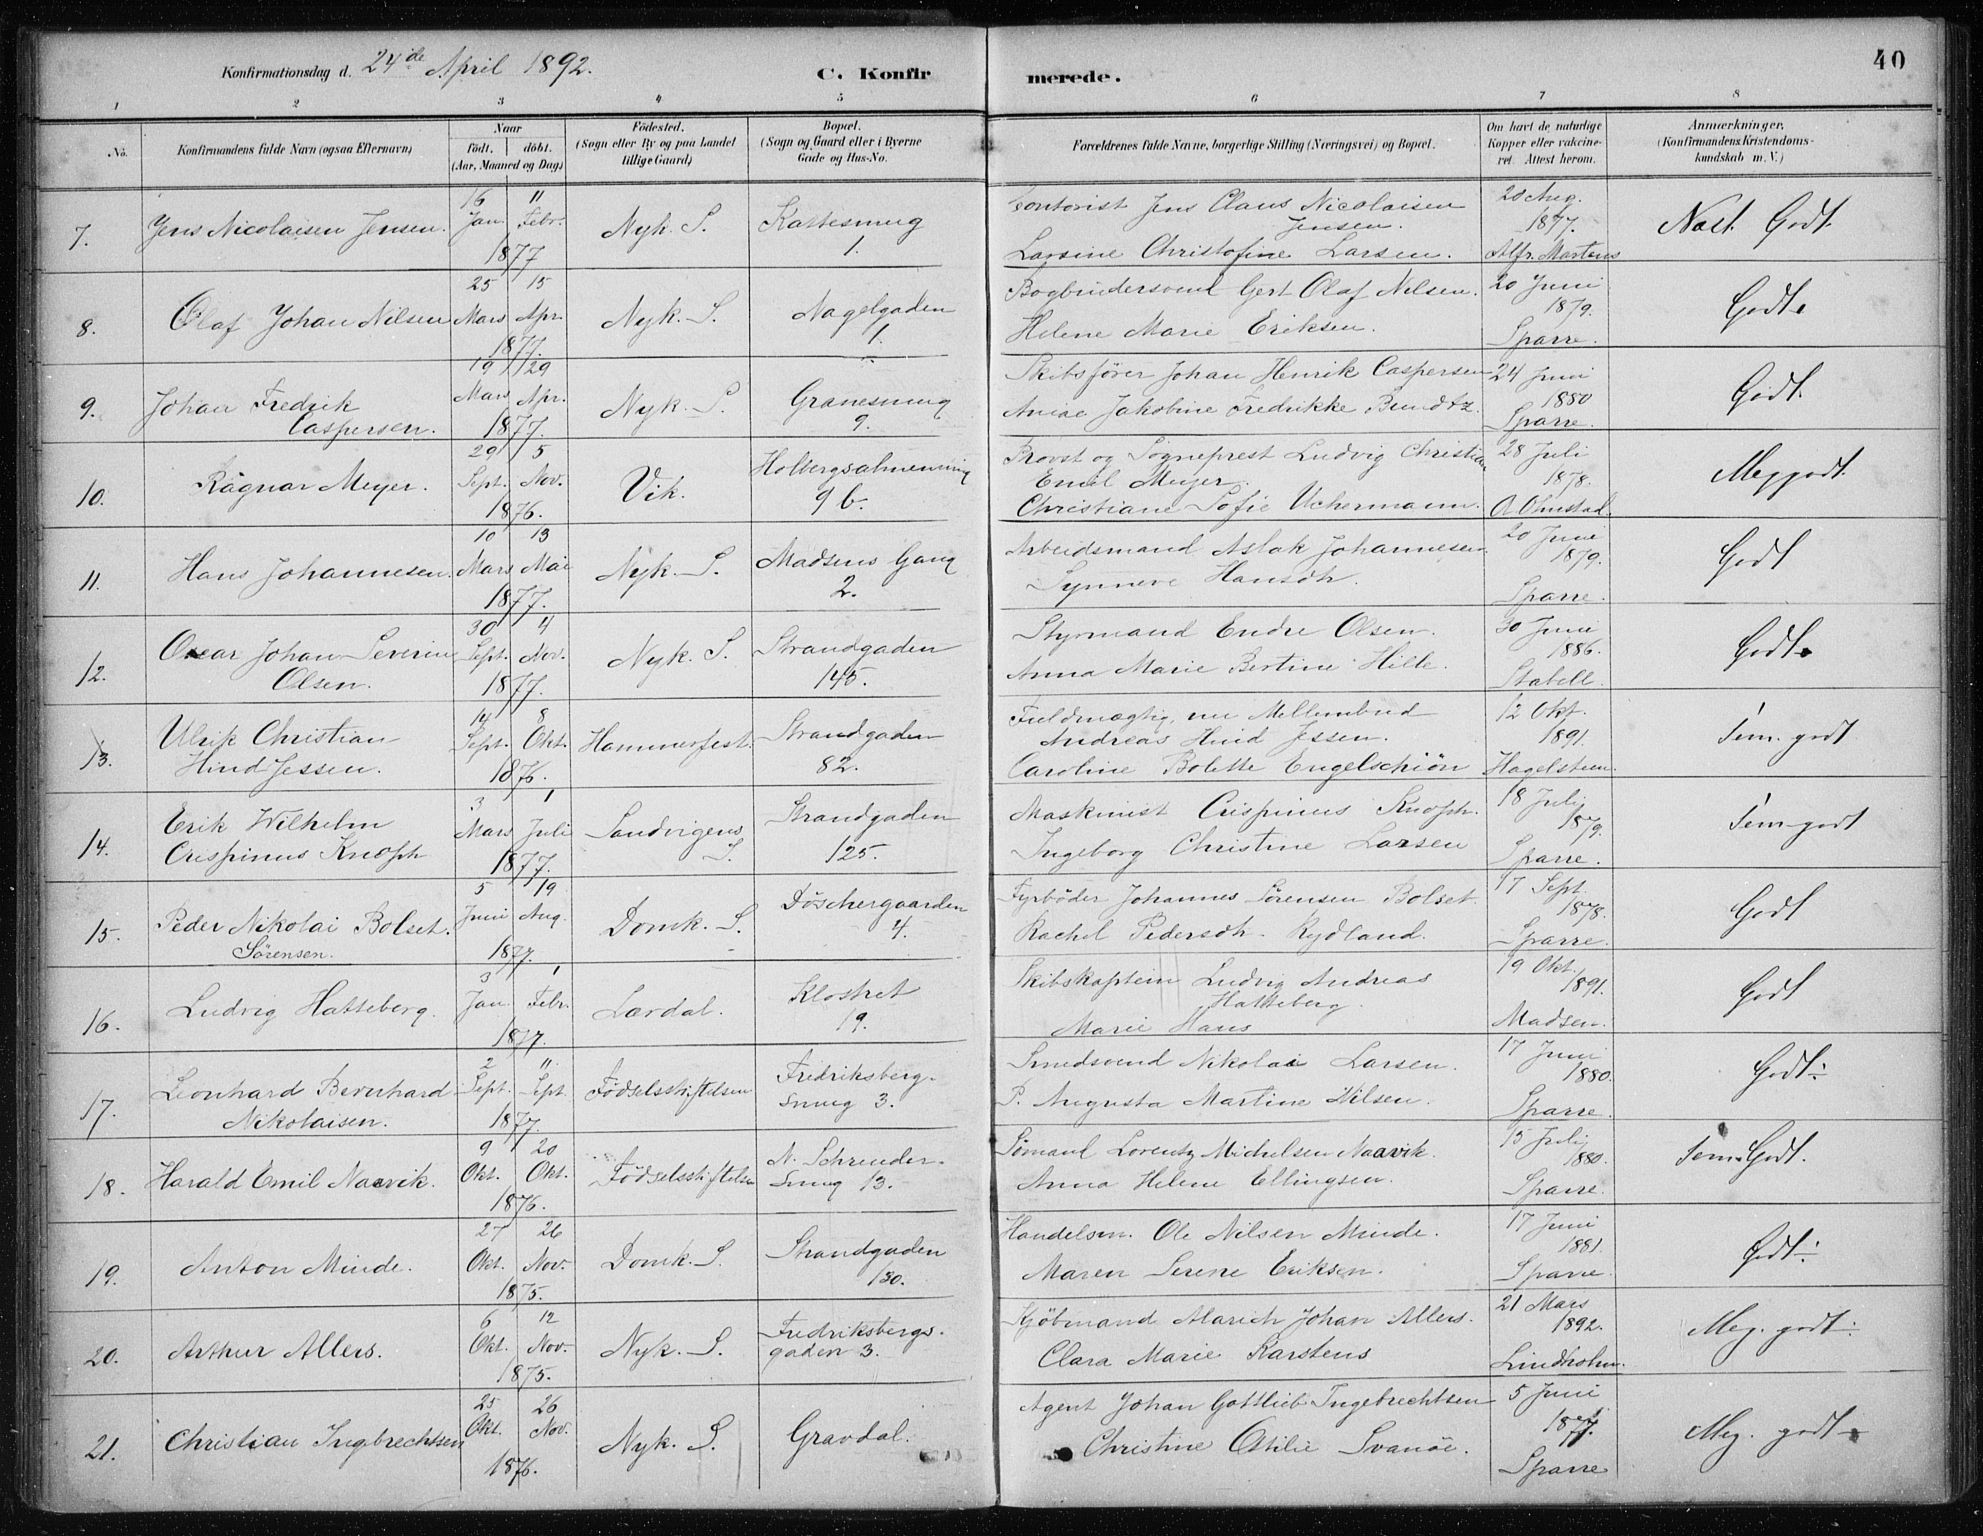 40
Konfirmationsdag d. 24de April 1892. C. Konfirmerede.
1 2 3 4 5 6 7 8
No. Konfirmandens fulde Navn (ogsaa Efternavn) Naar født. døbt. (Aar, Maaned og Dag) Fødested. (Sogn eller By og paa Landet tillige Gaard) Bopæl. (Sogn og Gaard eller i Byerne Gade og Hus-No. Forældrenes fulde Navne, borgerlige Stilling (Næringsvei) og Bopæl. Om havt de naturlige Kopper eller vaccineret. Attest herom. Anmærkninger. (Konfirmandens Kristendomskundskab m. V.)
7. Jens Nicolaisen Jensen. 16 Jan. 11 Febr. 1877 Nyk. S. Kattesmug 1. Contorist Jens Claus Nicolaisen Jensen.
Larsine Christofine Larsen. 28 Aug. 1877. Alfr. Martens Godt.
8. Olaf Johan Nilsen 25 Mars 15 Apr. 1877. Nyk. S. Nagelgaden 1. Bogbindersvend Gert Olaf Nilsen.
Helene Marie Eriksen. 20 Juni 1879. Sparre. Godt.
9. Johan Fredrik Caspersen. 19 Mars 29 Apr. 1877. Nyk. S. Granesmug 9. Skibsfører Johan Henrik Caspersen
Jakobine Fredrikke Bundtz. 24 Juni 1880 Sparre. Godt.
10. Ragnar Meyer. 29 Sept. 5 Nov. 1876. Vik. Holbergsalmenning 9 b. Provst og Sogneprest Ludvig Christian Emil Meyer.
Christiane Sofie Uchermann. 28 Juli 1878. Meg godt.
11. Hans Johannesen. 10 Mars 13 Mai 1877. Nyk. S. Madsens Gang 2. Arbeidsmand Aslak Johannesen
Synneve Hansdtr. 20 Juni 1879. Sparre. Godt
12. Oscar Johan Severin Olsen. 30 Sept. 4 Nov. 1877. Nyk. S. Strandgaden 145. Styrmand Endre Olsen.
Anna Marie Bertine Hille. 30 Juni 1886. Stabell. Godt.
13. Ulrik Christian Hind Jessen. 14 Sept. 8 Okt. 1876. Hammerfest. Strandgaden 82. Fuldmægtig, nu Mellembud
Andreas Hind Jessen.
Caroline Bolette Engelschiøn 12 Okt. 1891. Hagelsteen. Tem. godt
14. Erik Wilhelm Crispinus Knoph 3 Mars 1 Juli 1877. Sandvigens S. Strandgaden 125. Maskinist Crispinus Knoph.
Ingeborg Christine Larsen 18 Juli 1879. Sparre. Tem. godt
15. Peder Nikolai Bolset. Sørensen. 5 Juni 19 Aug. 1877. Domk. S. Døschergaarden 4. Fyrbøder Johannes Sørensen Bolset.
Rachel Pedersdtr. Rydland. 17 Sept. 1878. Sparre. Godt
16. Ludvig Hatteberg. 3 Jan. 1 Febr. 1877. Lærdal. Klostret 19. Skibskaptein Ludvig Andreas Hatteberg.
Marie Hans 19 Okt. 1891. Madsen. Godt
17. Leonhard Bernhard Nikolaisen. 2 Sept. 11. Sept. 1877. Fødselsstiftelsen Fredriksberg. Smug 3. Smedsvend Nikolai Larsen.
P. Augusta Martine Nilsen. 17 Juni 1880. Sparre. Godt.
18. Harald Emil Naavik. 9 Okt. 20 Okt. 1876. Fødselsstiftelsen N. Schreuder. Smug 13. Sømand Lorentz Michelsen Naavik.
Anna Helene Ellingsen. 15 Juli 1880. Sparre. Tem. Godt.
19. Anton Minde. 27 Okt. 26 Nov. 1875. Domk. S. Strandgaden 130. Handelsm. Ole Nilsen Minde.
Maren Serene Eriksen. 17 Juni 1881. Sparre Godt.
20. Arthur Allers. 6 Okt. 12 Nov. 1875. Nyk. S. Fredriksbergs. gaden 3. Kjøbmand Alarich Johan Allers.
Clara Marie Karstens 21 Mars 1892. Lindholm. Meg. godt.
21. Christian Ingebrechtsen 25 Okt. 26 Nov. 1876. Nyk. S. Gravdal. Agent Johan Gottlieb Ingebrechtsen
Christine Otilie Svanøe. 5 Juni 1877. Sparre Meg. godt